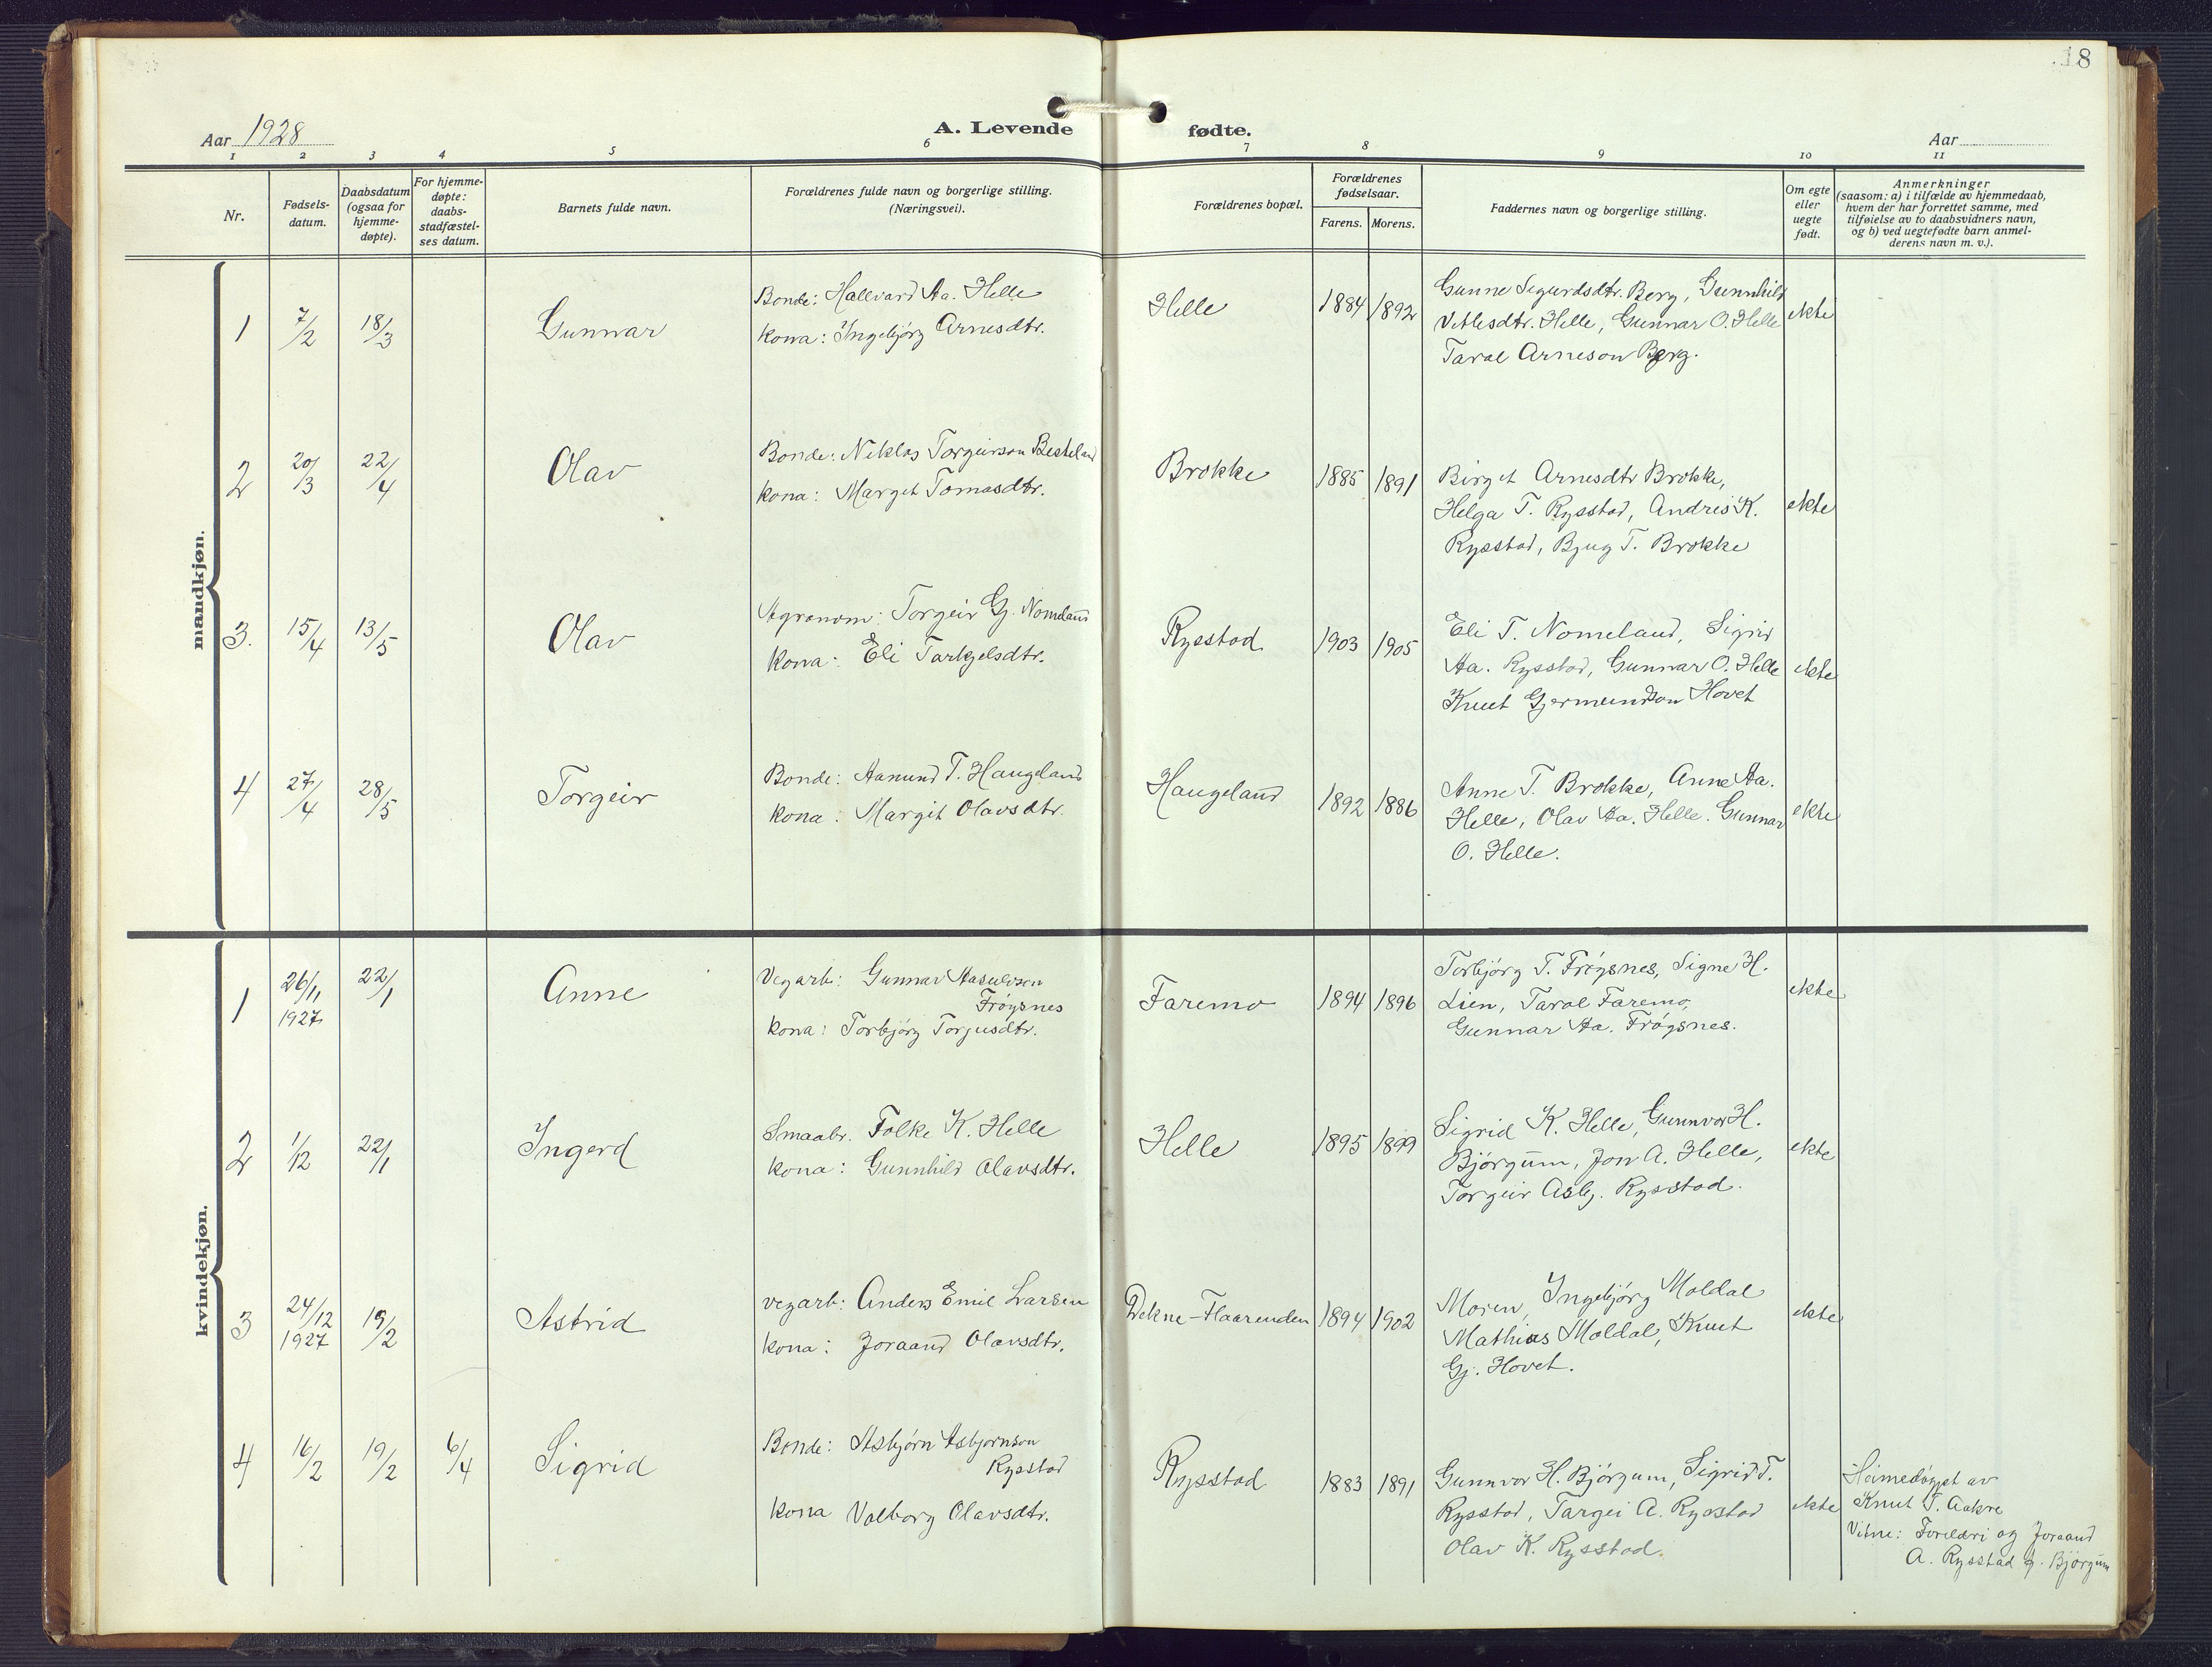 18
Aar 1928
A. Levende fødte.
Aar
1 2 3 4 5 6 7 8 9 10 11
Nr.
Fødsels-
datum.
Daabsdatum
(ogsaa for
hjemme-
døpte).
For hjemme-
døpte:
daabs-
stadfæstel-
ses datum.
Barnets fulde navn.
Forældrenes fulde navn og borgerlige stilling.
(Næringsvei).
Forældrenes bopæl.
Forældrenes
fødselsaar.
Farens. Morens.
Faddernes navn og borgerlige stilling.
Om egte
eller
uegte
født.
Anmerkninger
(saasom: a) i tilfælde av hjemmedaab,
hvem der har forrettet samme, med
tilføielse av to daabsvidners navn,
og b) ved uegtefødte barn anmel-
derens navn m. v.).
mandkjøn.
1 7/2 18/3 Gunnar
Bonde: Hallvard Aa. Helle
kona: Ingebjörg Arnesdtr.
Helle 1884 1892
Gunne Sigurdsdtr. Berg, Gunnhild
Vetlesdtr. Helle, Gunnar O. Helle
Taral Arneson Berg.
ekte
2 20/3 22/4 Olav
Bonde: Neklas Torgeirson Besteland
kona: Marget Tomasdtr.
Brokke 1885 1891
Birgit Arnesdtr Brokke,
Helga T. Rysstad, Andris K.
Rysstad, Bjug T. Brokke
ekte
3. 15/4 13/5 Olav
Agronom: Torgeir Gj. Nomeland
kona: Eli Tarkjelsdtr.
Rysstad 1903 1905
Eli T. Nomeland, Sigrid
Aa. Rysstad, Gunnar O. Helle
Knut Gjermundson Hovet
ekte
4 27/4 28/5 Torgeir
Bonde: Aanund T. Haugeland
kona: Margit Olavsdtr.
Haugeland 1892 1886
Anne T. Brokke, Anne Aa.
Helle, Olav Aa. Helle. Gunnar
O. Helle.
ekte
kvindekjøn.
1 26/11 1927 22/1 Anne
Vegarb: Gunnar Aasulvson
Fröysnes
kona: Torbjörg Torjusdtr.
Faremo 1894 1896
Torbjörg T. Fröysnes, Signe H.
Lien, Taral Faremo,
Gunnar Aa. Fröysnes.
ekte
2 1/12 22/1 Ingerd
Smaabr. Folke K. Helle
kona: Gunnhild Olavsdtr.
Helle 1895 1899
Sigrid K. Helle, Gunnvor H.
Björgum, Jon A. Helle,
Torgeir Asbj. Rysstad.
ekte
3 24/12 1927 19/2 Astrid
vegarb: Anders Emil Larsen
kona: Joraand Olavsdtr.
1894 1902
Moren, Ingebjörg Moldal
Mathias Moldal, Knut
Gj. Hovet.
ekte
4 16/2 19/2 6/4 Sigrid
Bonde: Asbjörn Asbjornson
Rysstad
kona Valborg Olavsdtr.
Rysstad 1883 1891
Gunnvor H. Björgum, Sigrid T.
Rysstad, Targei A. Rysstad
Olav K. Rysstad.
ekte
Heimedöypt av
Knut T. Aakre
Vitne: Foreldri og Joraand
A. Rysstad f. Björgum